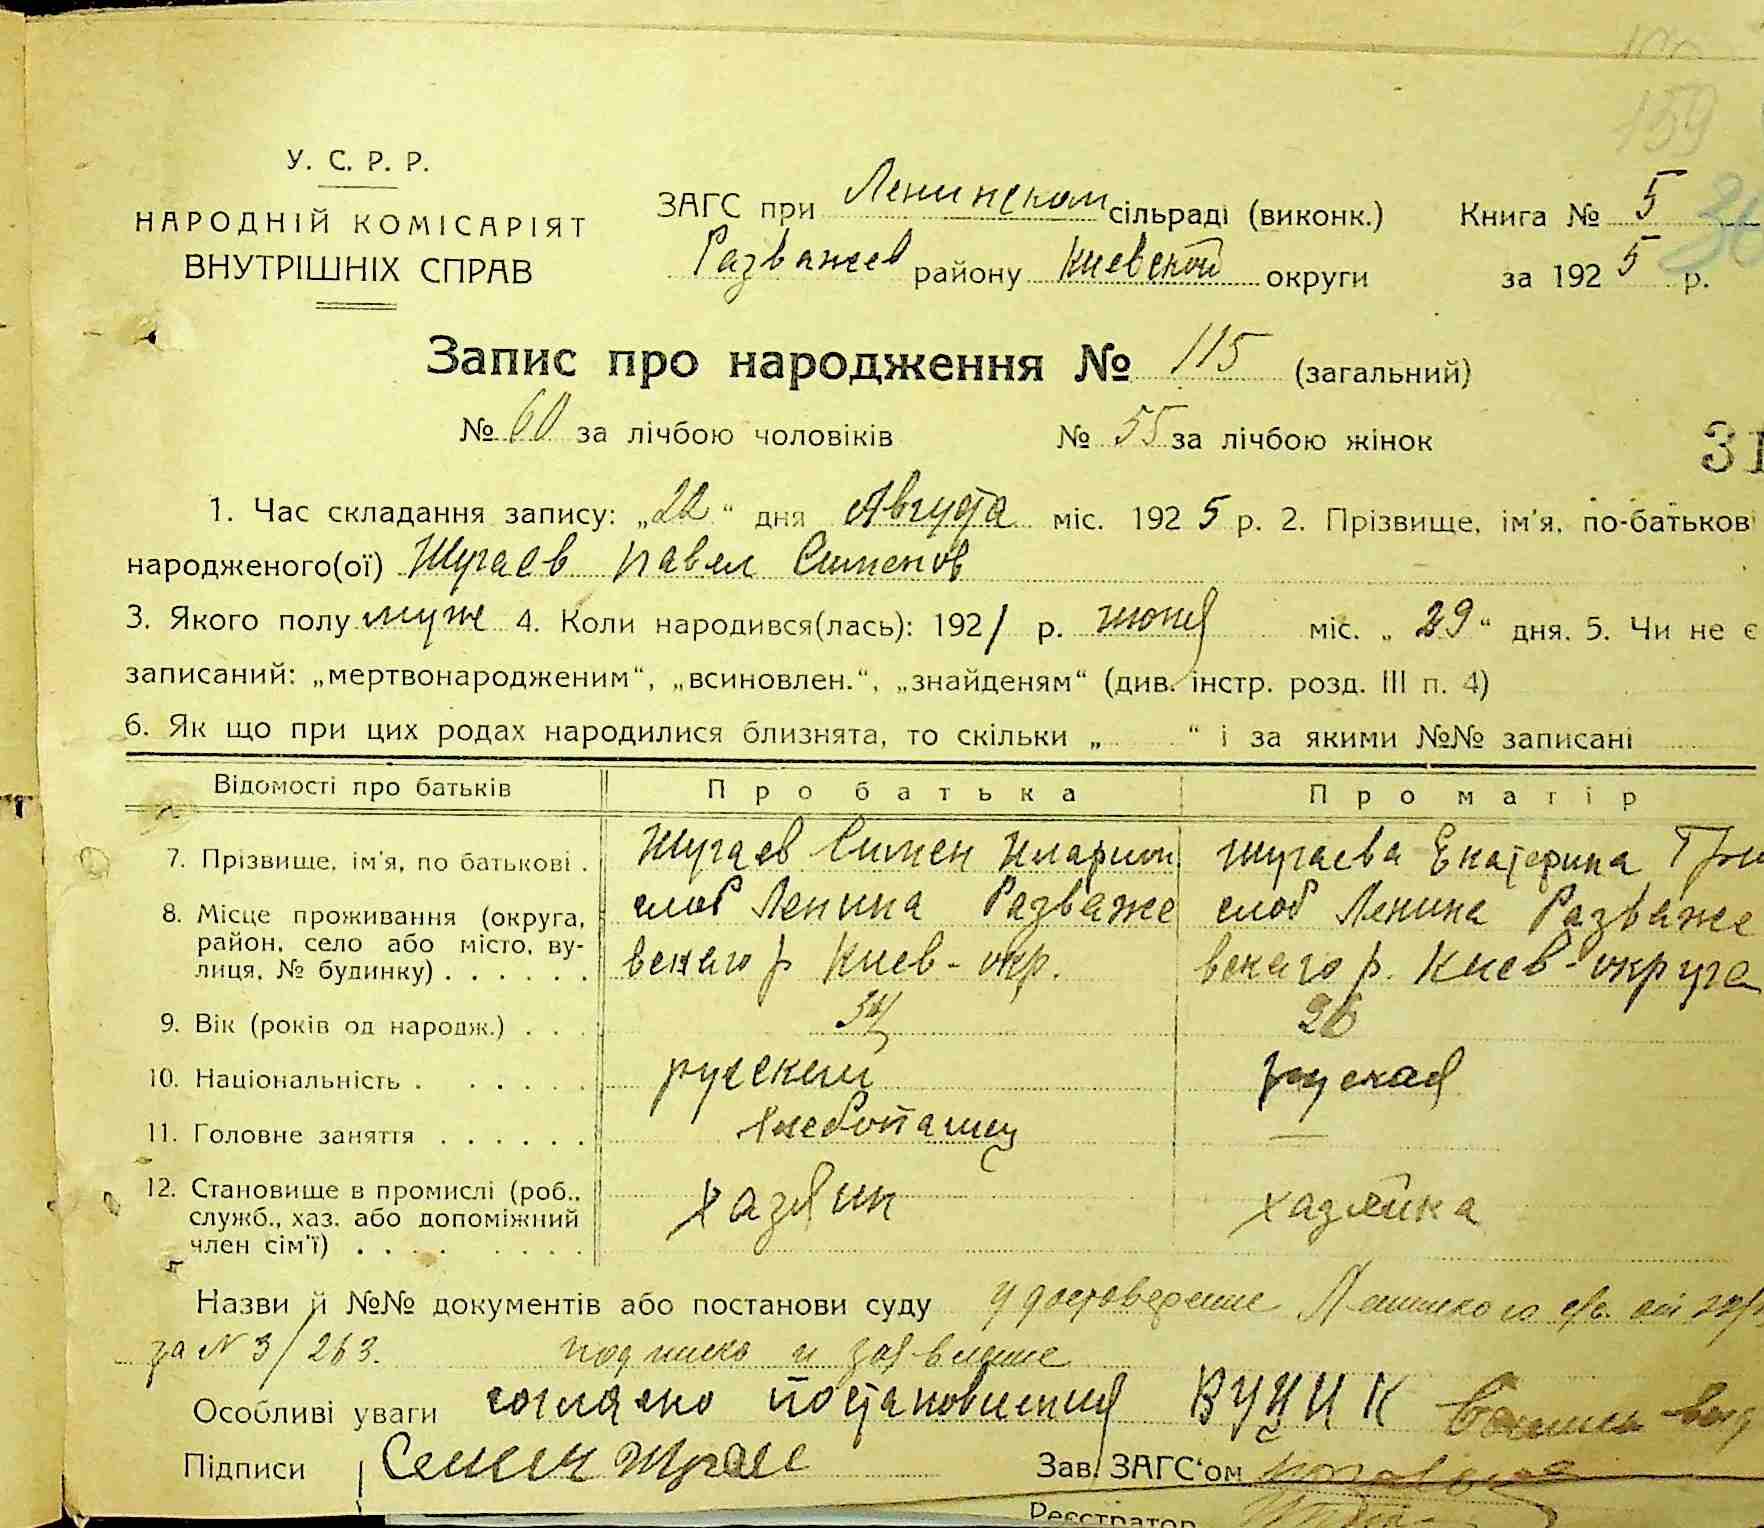 159
У. С. Р. Р.
НАРОДНІЙ КОМІСАРІЯТ
ВНУТРІШНІХ СПРАВ
ЗАГС при Ленинском сільраді (виконк.) Книга № 5
Разважев району Киевской округи за 1925 р.
Запис про народження № 115 (загальний)
№ 60 за лічбою чоловіків № 55 за лічбою жінок
31
1. Час складання запису: „22“ дня Августа міс. 1925 р. 2. Прізвище, ім'я, по-батькові
народженого(ої) Шугаев Павел Сименов
3. Якого полу муж 4. Коли народився(лась): 1921 р. июня міс. „29“ дня. 5. Чи не є
записаний: „мертвонародженим“, „всиновлен.“, „знайденям“ (див. інстр. розд. III п. 4)
6. Як що при цих родах народилися близнята, то скільки „ “ і за якими №№ записані
Відомості про батьків Про батька Про матір
7. Прізвище, ім'я, по батькові . Шугаев Симен Иларион Шугаева Екатерина Гри
8. Місце проживання (округа, слоб Ленина Разваже слоб Ленина Разваже
район, село або місто, ву-
лиця, № будинку) . . . . . . вскаго р Киев-окр. вскаго р. Киев-округа
9. Вік (років од народж.) . . . 34 26
10. Національність . . . . . . руский руская
11. Головне заняття . . . . . . хлебопашец —
12. Становище в промислі (роб.,
служб., хаз. або допоміжний хазяин хазяйка
член сім'ї) . . . . . . . .
Назви й №№ документів або постанови суду удостоверение Ленинского с/с.
за № 3/263. подписка и заявление
Особливі уваги согласно постановления ВУЦИК
Підписи Семен Шугаев Зав. ЗАГС'ом
Реєстратор